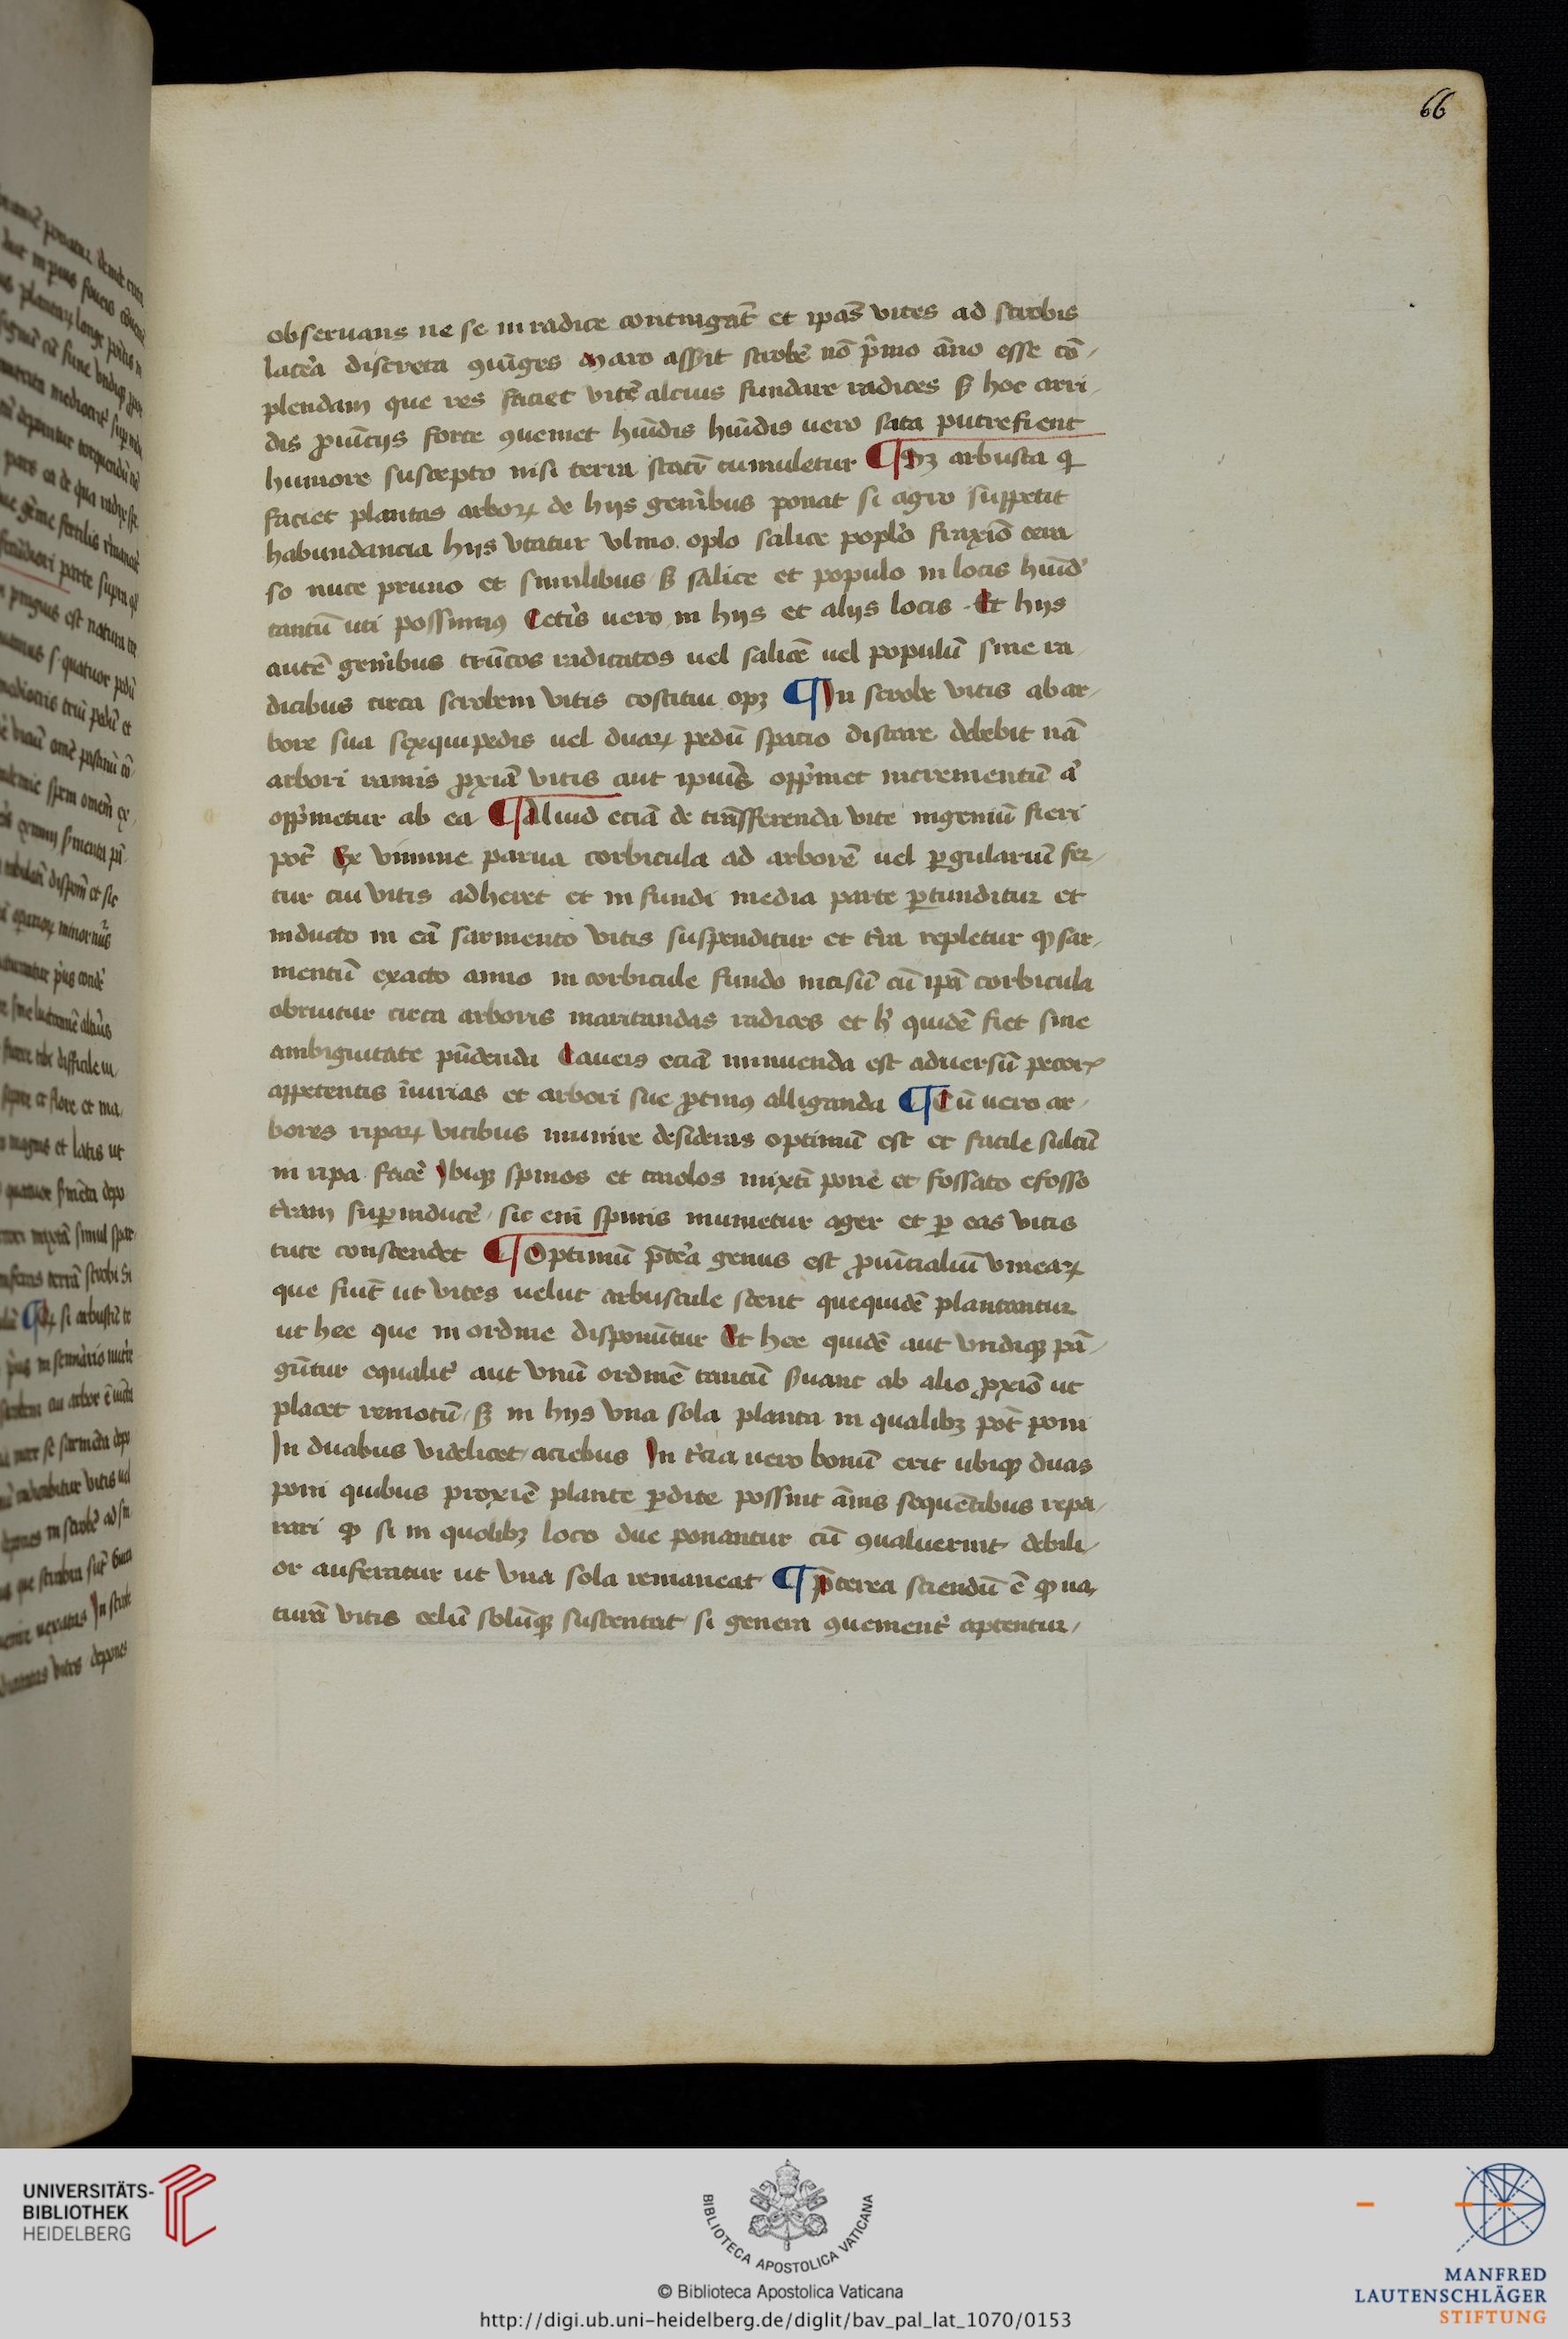 66
obseruans ne se in radice contingāt et ipās vites ad scrobis
latēa discreta ꝯiūges Maro assit scrobē nō pͥmo āno esse cō
plendam que res faciet vitē alcius fundare radices sꝫ hoc arri
dis ꝓuīciis forte ꝯueniet hūidis hūidis uero sata putrefient
humore suscepto nisi terra statī cumuletur ¶ arbusta qͥ
faciet plantas arboꝝ de hijs genībus ponat si agro suppetit
habundancia hijs vtatur vlmo oplo salice poplo fraxīo cera
so nuce pruno et similibus sꝫ salice et populo in locis hūid
tantū uti possimꝰ Cetīs uero in hijs et alijs locis Et hijs
autē genībus trūcos radicatos uel salicē uel populū sine ra
dicibus circa scrobem vitis costitui opꝫ ¶In scrobe vitis ab ar
bore sua sexquipedis uel duaꝝ pedū spacio distare debebit nā
arbori ramis ꝓxīa vitis aut ipiuꝰ oppͥmet incrementū aͭ
oppͥmetur ab ea ¶Aliud eciā de trāsferenda vite ingeniū fieri
potͭ Ex vimine parua corbicula ad arborē uel ꝑgulariū fer
tur cui vitis adheret et in fundi media parte ꝑtunditur et
inducto in eā sarmento vitis suspenditur et tͥra repletur qͦ sar
mentū exacto anno in corbicule fundo incisū cū ipā corbicula
obruitur circa arboris maritandas radices et hͥ quidē fiet sine
ambiguitate pn̄denda Caueis eciā minuenda est aduersū pecoꝝ
appetentis īiurias et arbori sue ꝓtinꝰ alliganda ¶Cū uero ar
bores ripaꝝ vitibus munire desideras optimū est et facile sulcū
in ripa facē Ibiqꝫ spinos et caiolos mixtī ponē et fossato effosso
tͥram suꝑinducē sic enī spinis munietur ager et ꝑ eas vitis
tute conscendet ¶Optimū p̄tea genus est ꝓuīcialiū vineaꝝ
que fiūt ut vites uelut arbuscule stent quequidē plantantur
ut hee que in ordine disponūtur Et hee quidē aut vndiqꝫ pā
gūtur equalitͥ aut vnū ordinē tantū ẜuant ab alio ꝓxīo ut
placet remotū sꝫ in hijs vna sola planta in qualibꝫ pōt poni
In duabus videlicet aciebus In tͥcia uero bonū erit ubiqꝫ duas
poni quibus proxiē plante ꝑdite possint ānis sequētibus repa
rari qͦ si in quolibꝫ loco due ponantur cū ꝯualuerint debili
or auferatur ut vna sola remaneat ¶p̄terea sciendū ē qͦ na
turā vitis celū solūqꝫ sustentat si genera ꝯuenientͥ aptentur
UNIVERSITÄTS-
BIBLIOTHEK
HEIDELBERG
BIBLIOTECA APOSTOLICA VATICANA
© Biblioteca Apostolica Vaticana
http://digi.ub.uni-heidelberg.de/diglit/bav_pal_lat_1070/0153
MANFRED
LAUTENSCHLÄGER
STIFTUNG